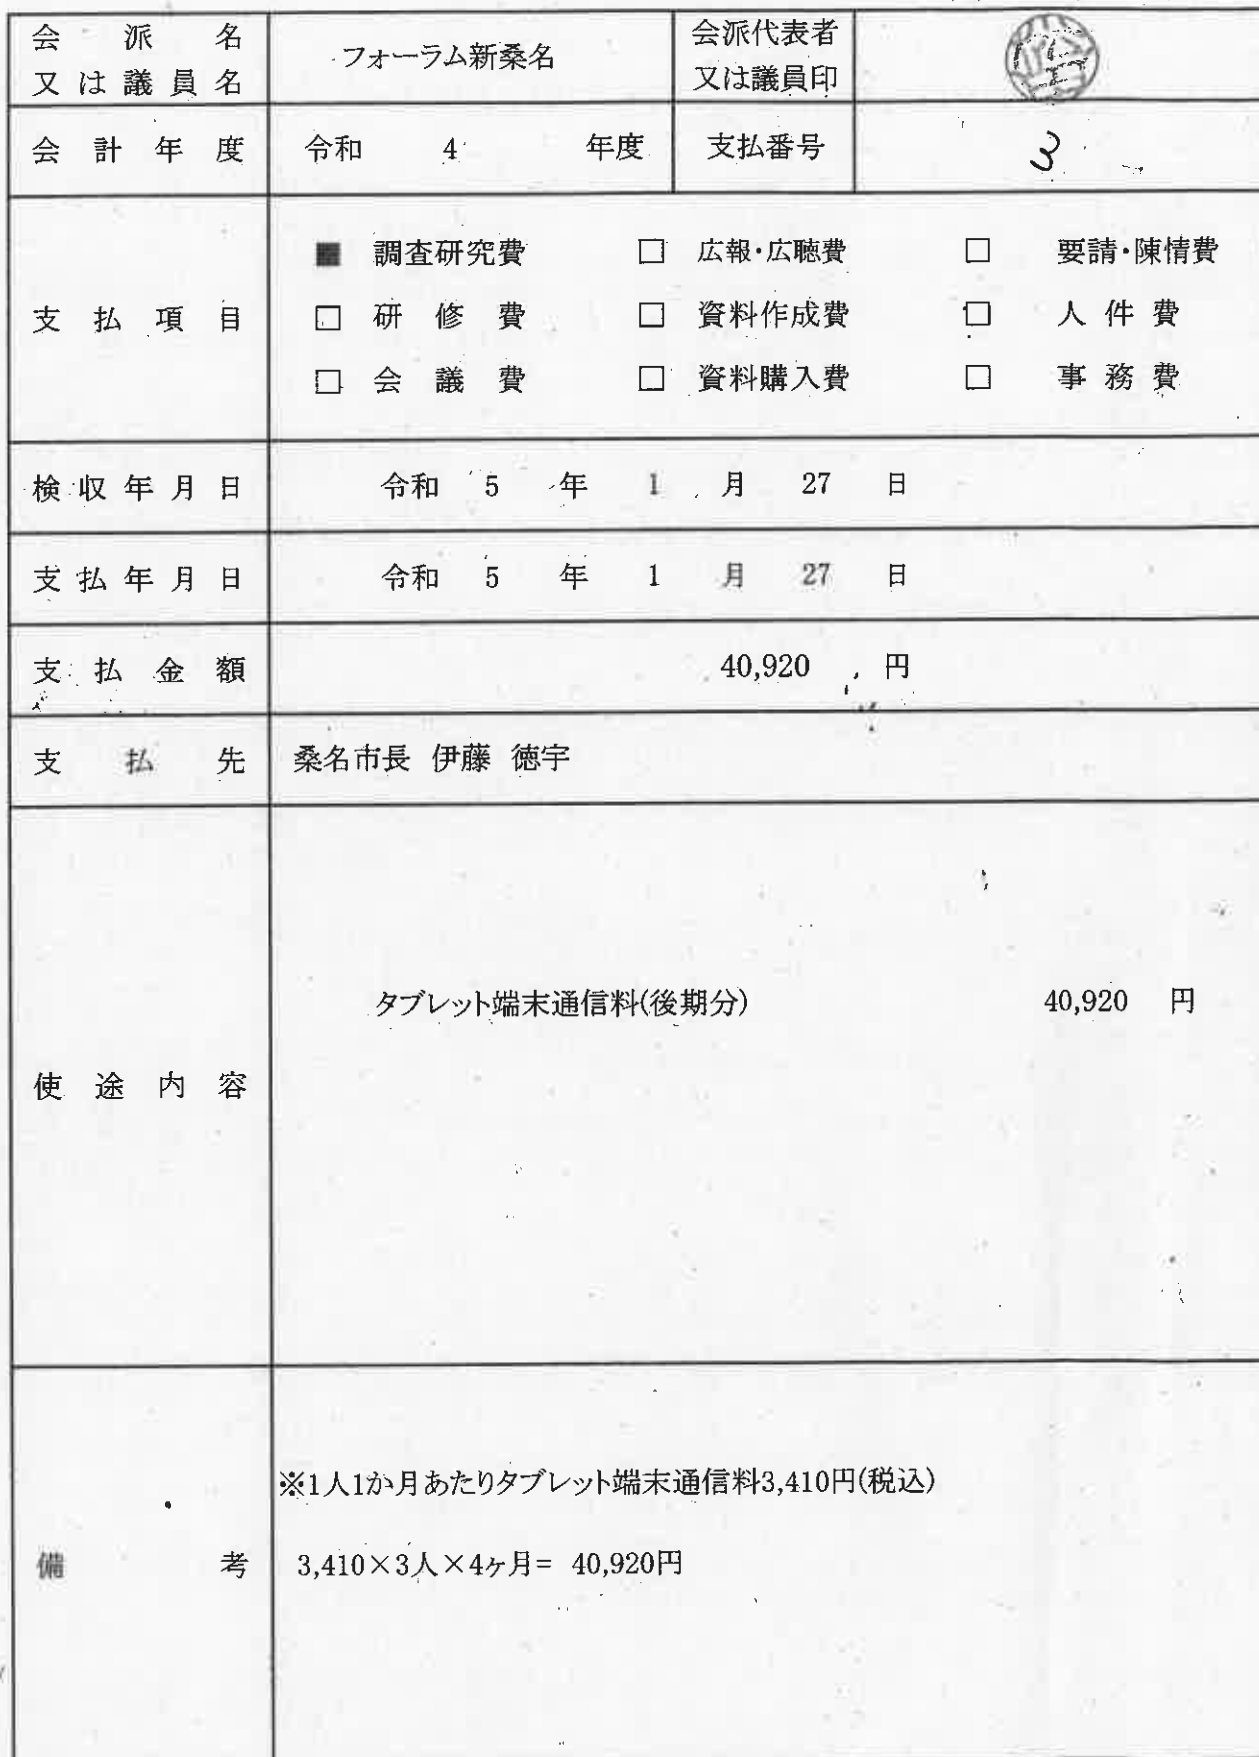 会派名
又は議員名
フォーラム新桑名
会派代表者
又は議員印
会計年度
令和 4 年度
支払番号
3
支払項目
■ 調査研究費 □ 広報・広聴費 □ 要請・陳情費
□ 研修費 □ 資料作成費 □ 人件費
□ 会議費 □ 資料購入費 □ 事務費
検収年月日
令和 5 年 1 月 27 日
支払年月日
令和 5 年 1 月 27 日
支払金額
40,920 円
支払先
桑名市長 伊藤 徳宇
使途内容
タブレット端末通信料(後期分) 40,920 円
備考
※1人1か月あたりタブレット端末通信料3,410円(税込)
3,410×3人×4ヶ月= 40,920円